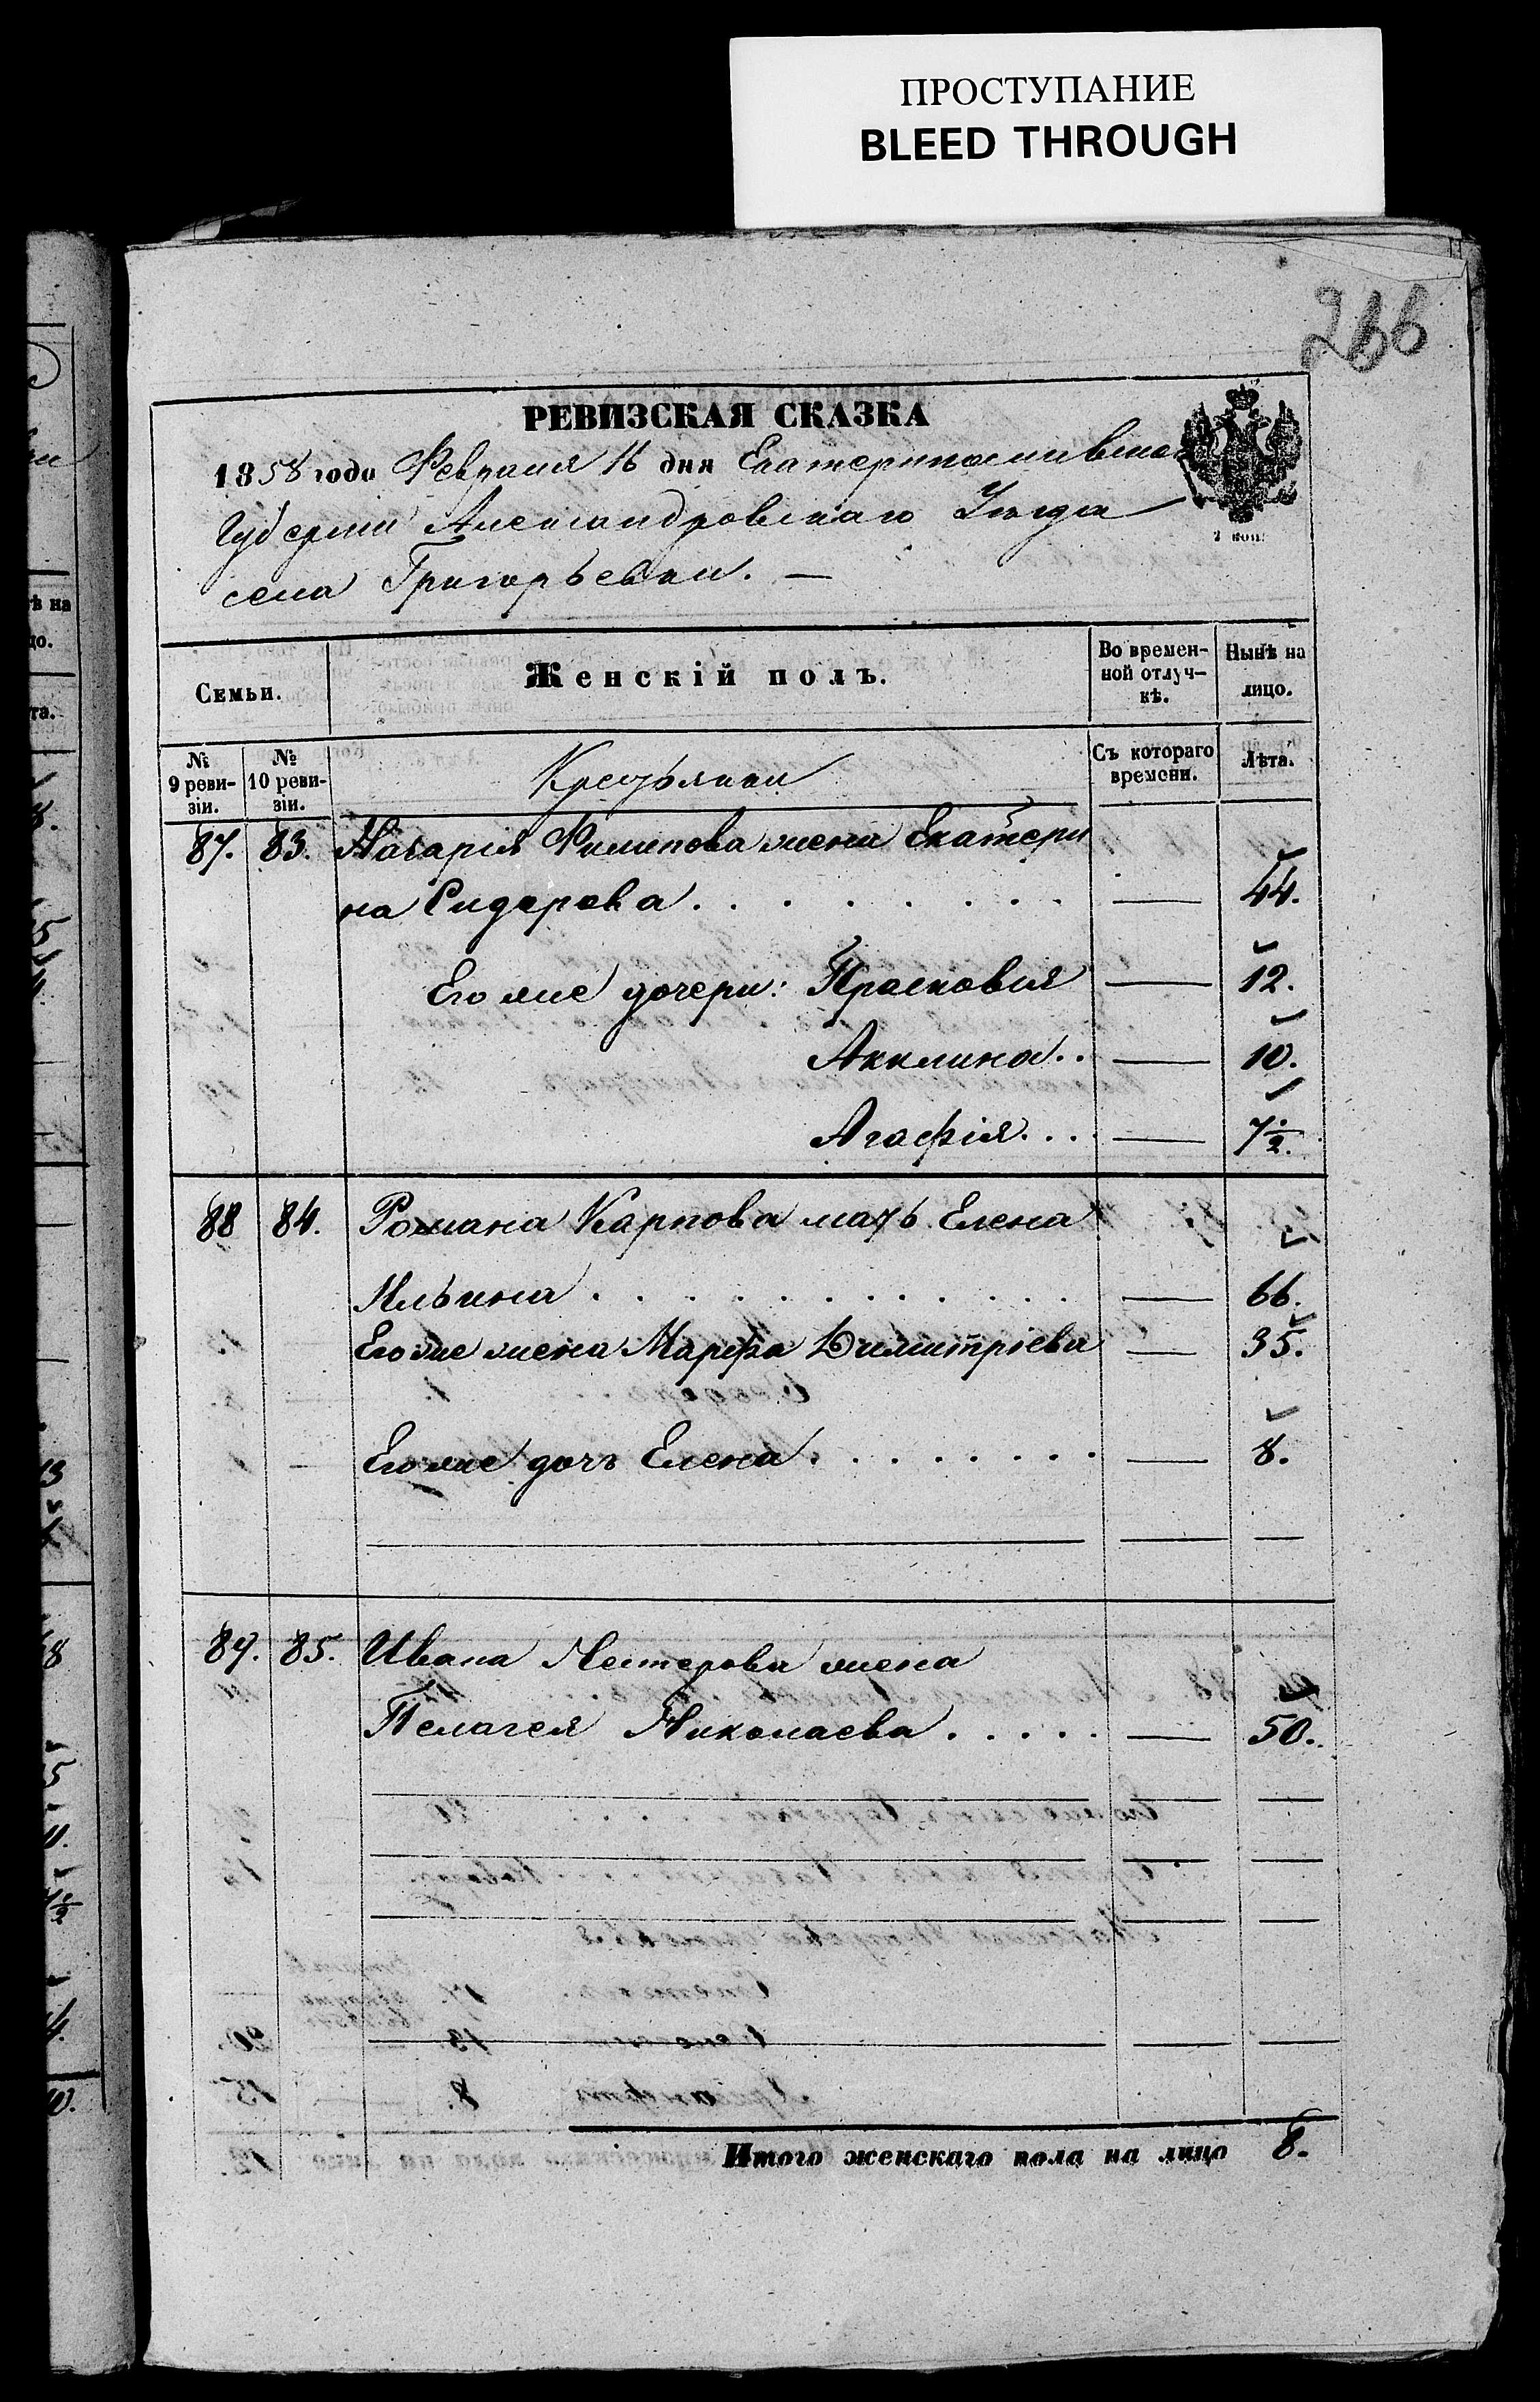 ПРОСТУПАНИЕ
BLEED THROUGH
266
РЕВИЗСКАЯ СКАЗКА
1858 года Февраля 16 дня Екатеринославской
Губернии Александровскаго Уѣзда
села Григорьевки. —
Семьи.
Женскій полъ.
Во времен-
ной отлуч-
кѣ.
Нынѣ на
лицо.
№
9 реви-
зіи.
№
10 реви-
зіи.
Крестьянки
Съ котораго
времени.
Лѣта.
87. 83. Назарія Филипова жена Екатери
на Сидорова . . . . . . . . — 44.
Его же дочери: Прасковія — 12.
Акилина . . — 10.
Агафія . . . — 7½.
88 84. Романа Карпова мать Елена
Ильина . . . . . . . . . . . — 66.
Его же жена Марфа Димитріева — 35.
Его же дочъ Елена . . . . . . . — 8.
89. 85. Ивана Нестерова жена
Пелагея Николаева . . . . . — 50.
Итого женскаго пола на лицо 8.